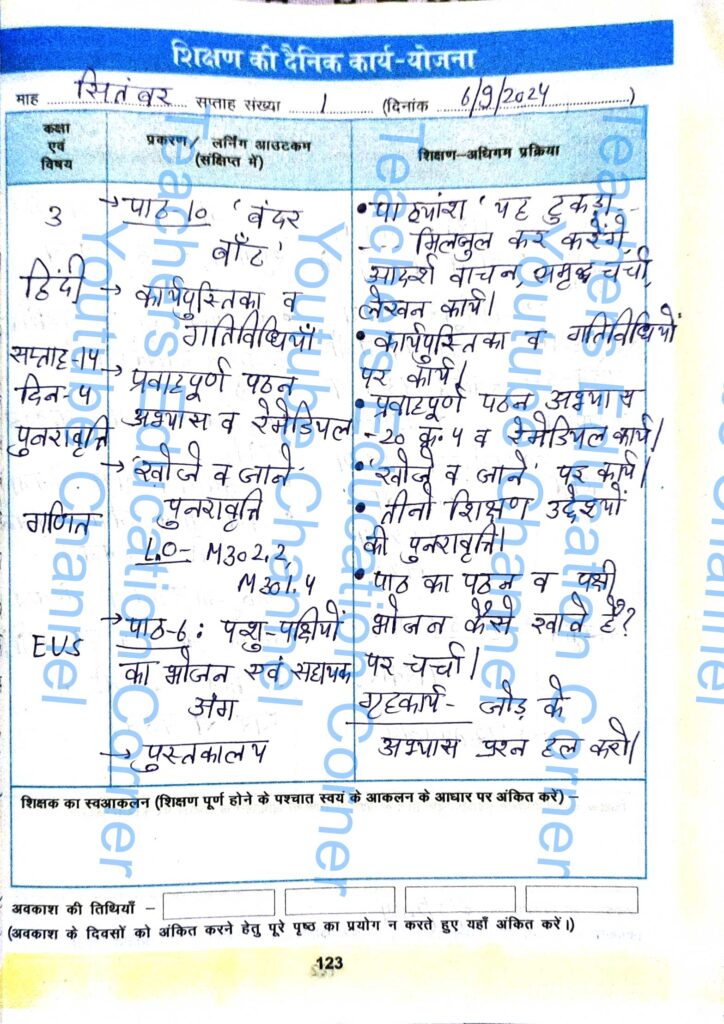 शिक्षण की दैनिक कार्य-योजना
माह सितंबर सप्ताह संख्या 1 (दिनांक 6/9/2024)
कक्षा एवं विषय
प्रकरण/ लर्निंग आउटकम (संक्षिप्त में)
शिक्षण-अधिगम प्रक्रिया
3
हिंदी
सप्ताह-14
दिन-4
पुनरावृत्ति
गणित
EVS
→ पाठ 10 'बंदर
बाँट'
→ कार्यपुस्तिका व
गतिविधियाँ
→ प्रवाहपूर्ण पठन
अभ्यास व रेमेडियल
→ 'खोजे व जाने'
पुनरावृत्ति
L.O- M302.2,
M301.4
→ पाठ-6: पशु-पक्षियों
का भोजन एवं सहायक
अंग
→ पुस्तकालय
• पाठ्यांश 'यह टुकड़ा--
--- मिलजुल कर करेंगे,
आदर्श वाचन, समृद्ध चर्चा,
लेखन कार्य।
• कार्यपुस्तिका व गतिविधियों
पर कार्य।
• प्रवाहपूर्ण पठन अभ्यास
-20 क्र. 4 व रेमेडियल कार्य।
• 'खोजे व जाने' पर कार्य।
• तीनो शिक्षण उद्देश्यों
की पुनरावृत्ति।
• पाठ का पठन व पक्षी
भोजन कैसे खाते है?
पर चर्चा।
गृहकार्य- जोड़ के
अभ्यास प्रश्न हल करो।
शिक्षक का स्वआकलन (शिक्षण पूर्ण होने के पश्चात स्वयं के आकलन के आधार पर अंकित करें) –
अवकाश की तिथियाँ –
(अवकाश के दिवसों को अंकित करने हेतु पूरे पृष्ठ का प्रयोग न करते हुए यहाँ अंकित करें।)
123
Teachers Education Corner
Youtube Channel
Teachers Education Corner
Youtube Channel
Teachers Education Corner
Youtube Channel